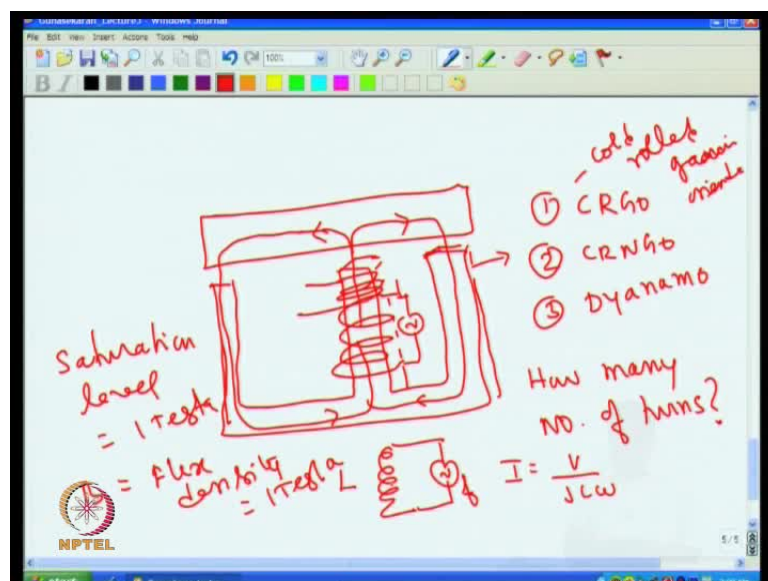 Gunasekaran_Lecture5 - Windows Journal
File Edit View Insert Actions Tools Help
100%
B I
cold rolled
① CRGO
② CRNGO
③ DYANAMO
Saturation
level
= 1 Tesla
= Flux
density
= 1 Tesla
How many
NO. of turns?
L
I = V / jLω
NPTEL
5/5
start